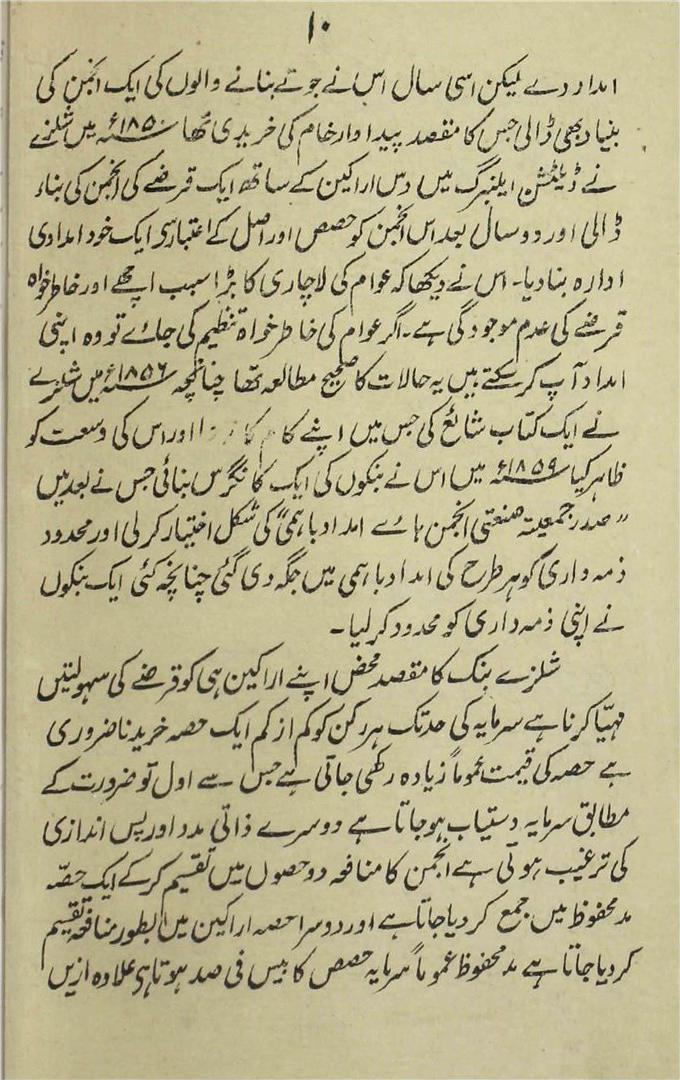 ۱۰
امداد دے لیکن اسی سال اس نے جوتے بنانے والوں کی ایک انجمن کی
بنیاد بھی ڈالی جس کا مقصد پیداوار خام کی خریدی تھا سنہ ۱۸۵۰ء میں شلزے
نے ڈیلٹش ایلنبرگ میں دس اراکین کے ساتھ ایک قرضے کی انجمن کی بناء
ڈالی اور دو سال بعد اس انجمن کو حصص اور اصل کے اعتبار سی ایک خود امدادی
ادارہ بنا دیا۔ اس نے دیکھا کہ عوام کی لاچاری کا بڑا سبب اچھے اور خاطر خواہ
قرضے کی عدم موجودگی ہے۔ اگر عوام کی خاطر خواہ تنظیم کی جائے تو وہ اپنی
امداد آپ کر سکتے ہیں یہ حالات کا صحیح مطالعہ تھا چنانچہ سنہ ۱۸۵۶ء میں شلزے
نے ایک کتاب شائع کی جس میں اپنے کام کا اور اس کی وسعت کو
ظاہر کیا سنہ ۱۸۵۹ء میں اس نے بنکوں کی ایک کانگرس بنائی جس نے بعد میں
"صدر جمعیتہ صنعتی انجمن ہائے امداد باہمی" کی شکل اختیار کر لی اور محدود
ذمہ داری کو ہر طرح کی امداد باہمی میں جگہ دی گئی چنانچہ کئی ایک بنکوں
نے اپنی ذمہ داری کو محدود کر لیا۔
شلزے بنک کا مقصد محض اپنے اراکین ہی کو قرضے کی سہولتیں
مہیّا کرنا ہے سرمایہ کی حد تک ہر رکن کو کم از کم ایک حصہ خریدنا ضروری
ہے حصہ کی قیمت عموماً زیادہ رکھی جاتی ہے جس سے اول تو ضرورت کے
مطابق سرمایہ دستیاب ہو جاتا ہے دوسرے ذاتی مدد اور پس اندازی
کی ترغیب ہوتی ہے انجمن کا منافعہ دو حصوں میں تقسیم کر کے ایک حصّہ
مد محفوظ میں جمع کر دیا جاتا ہے اور دوسرا حصہ اراکین میں بطور منافعہ تقسیم
کر دیا جاتا ہے مد محفوظ عموماً سرمایہ حصص کا بیس فی صد ہوتا ہی علاوہ ازیں